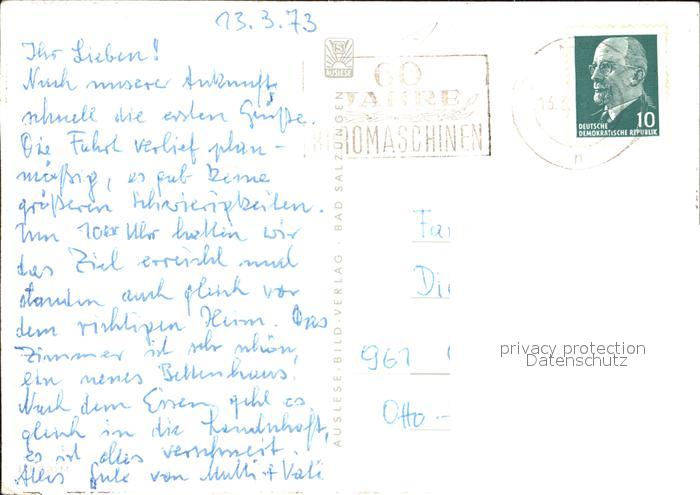 13.3.73
Ihr Lieben!
Nach unserer Ankunft
schnell die ersten Grüße.
Die Fahrt verlief plan-
mäßig, es gab keine
größeren Schwierigkeiten.
Um 10 Uhr hatten wir
das Ziel erreicht und
standen auch gleich vor
dem richtigen Heim. Das
Zimmer ist sehr schön,
ein neues Bettenhaus.
Nach dem Essen geht es
gleich in die Landschaft,
es ist alles verschneit.
Alles Gute von Mutti + Vati
AUSLESE
AUSLESE-BILD-VERLAG · BAD SALZUNGEN
60
JAHRE
OMASCHINEN
10
DEUTSCHE
DEMOKRATISCHE REPUBLIK
Fa
Di
961
Otto-
privacy protection
Datenschutz